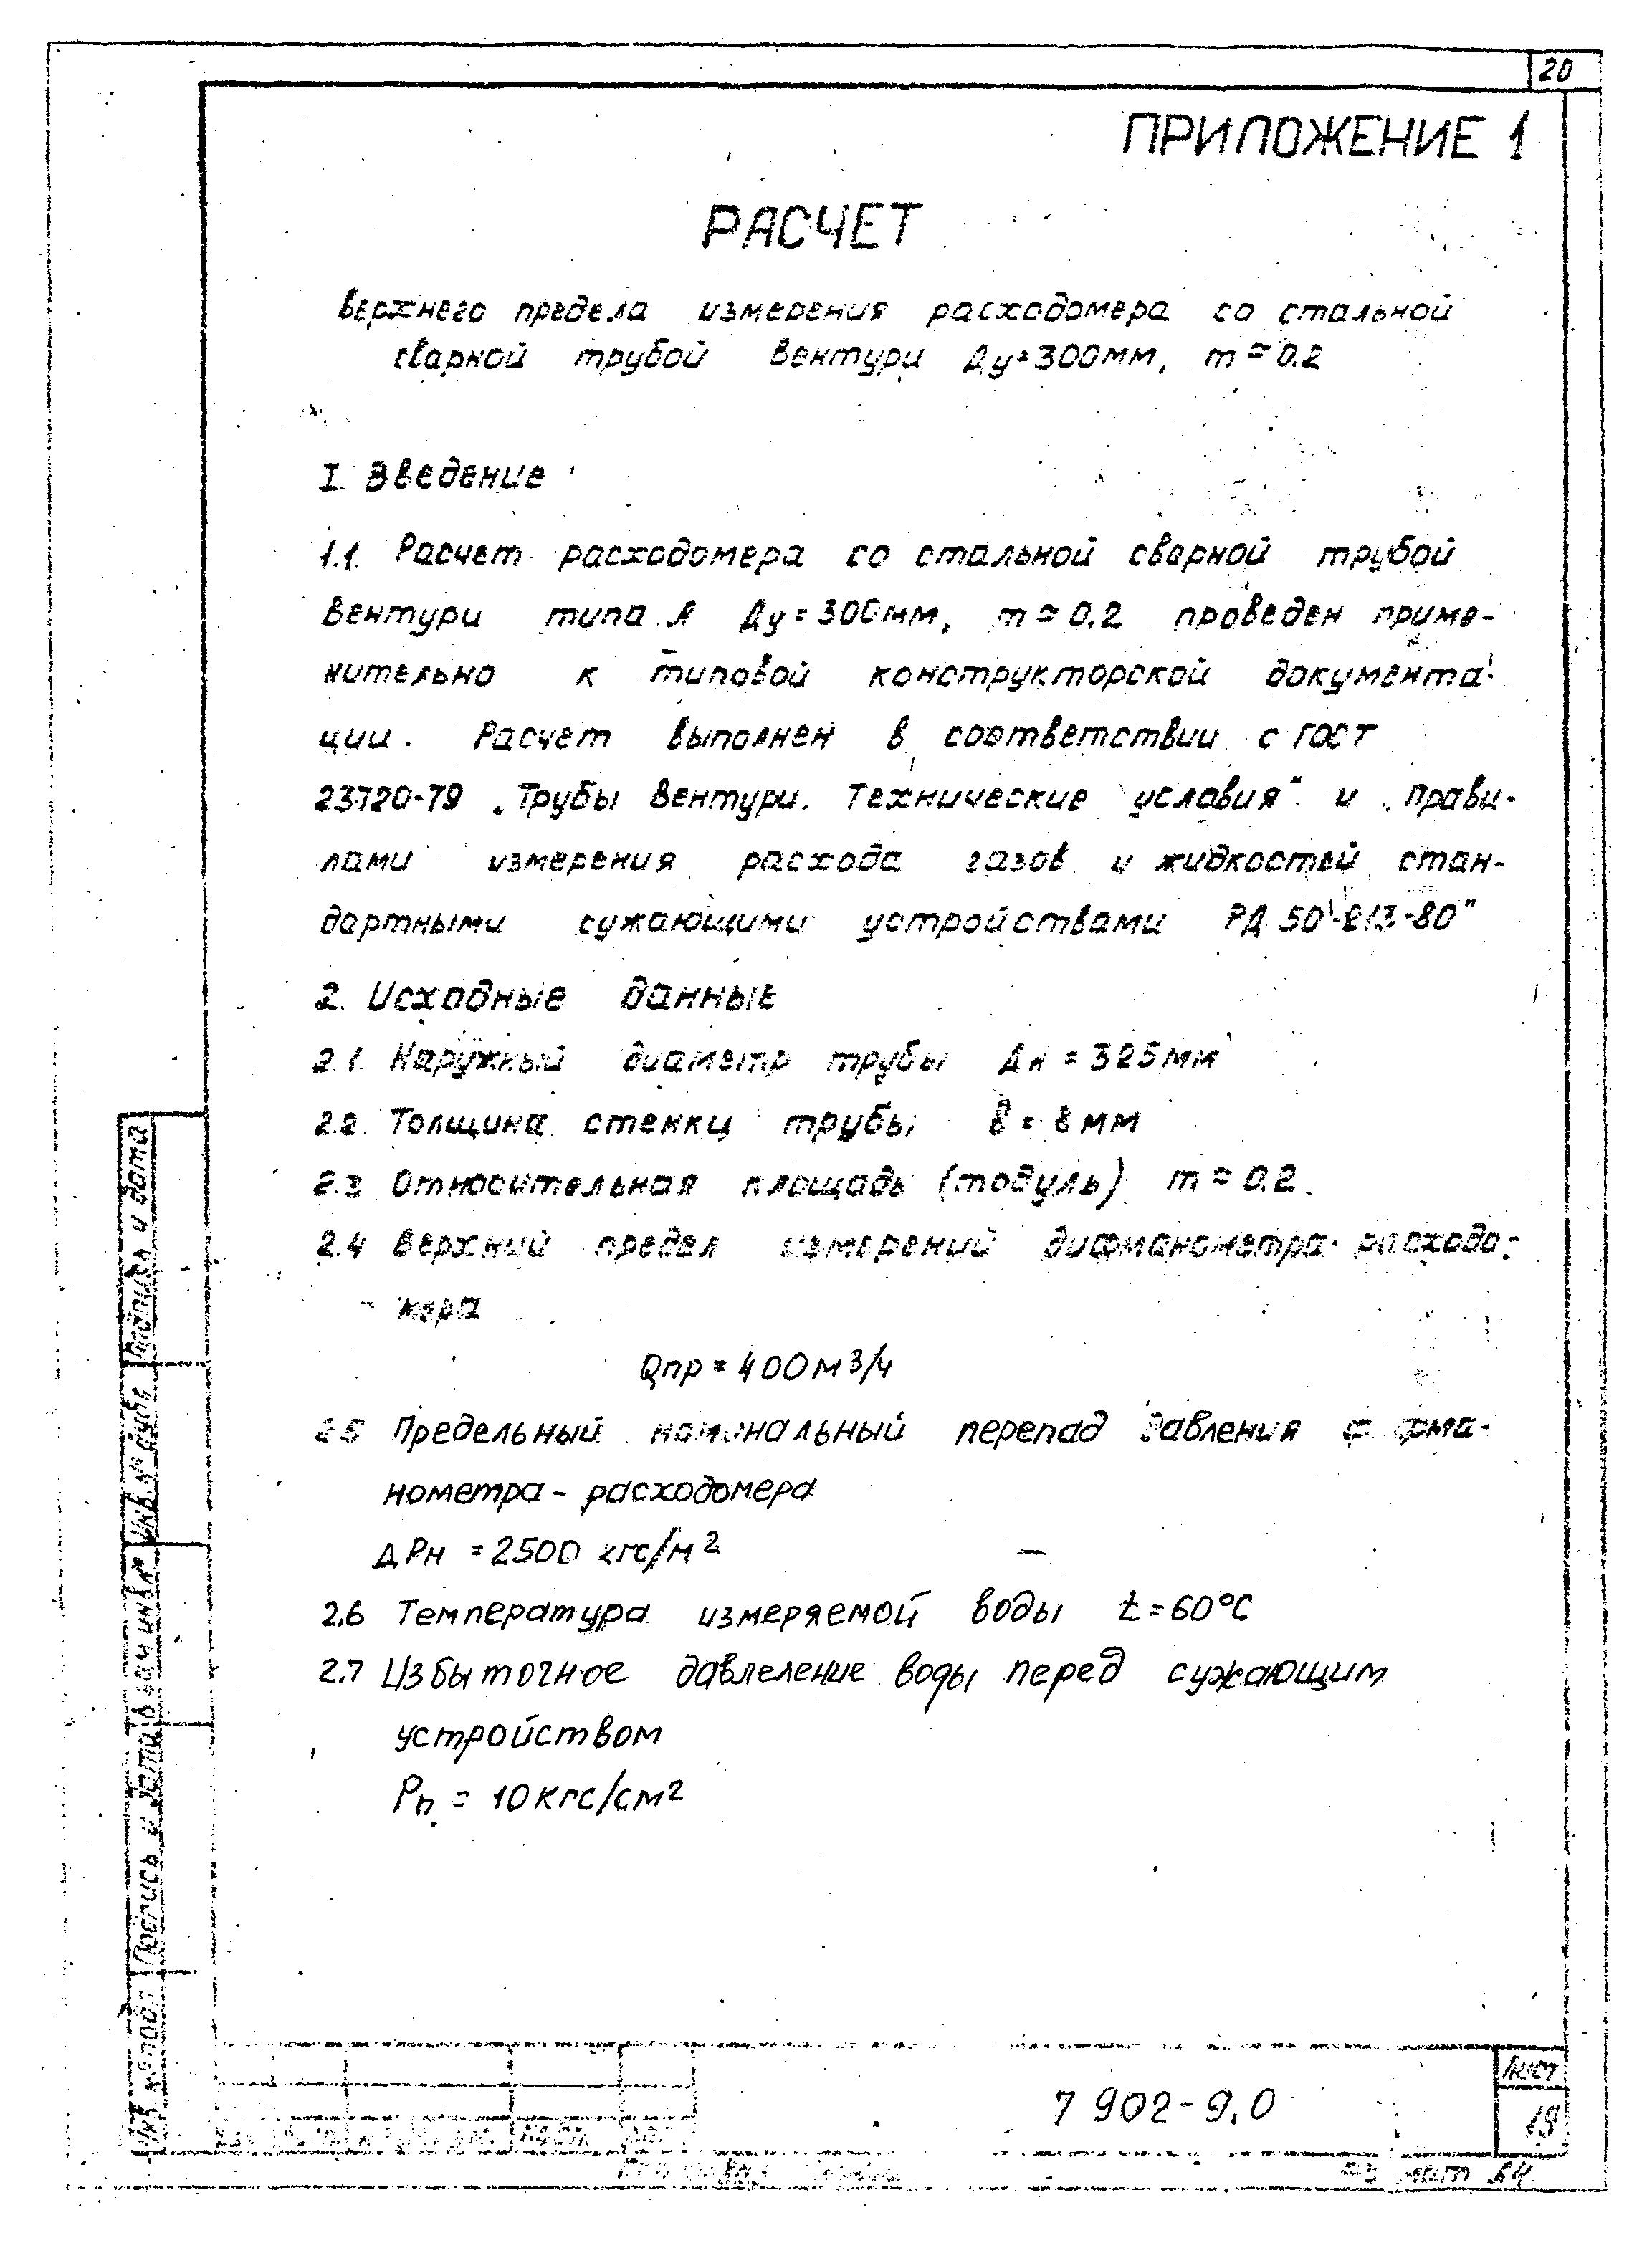 20
ПРИЛОЖЕНИЕ 1
РАСЧЕТ
верхнего предела измерения расходомера со стальной
сварной трубой Вентури Ду=300мм, m ≈ 0.2
I. Введение
1.1. Расчет расходомера со стальной сварной трубой
Вентури типа А Ду=300мм, m ≈ 0.2 проведен приме-
нительно к типовой конструкторской документа-
ции. Расчет выполнен в соответствии с ГОСТ
23720-79 „Трубы Вентури. Технические условия" и „Прави-
лами измерения расхода газов и жидкостей стан-
дартными сужающими устройствами РД 50-213-80"
2. Исходные данные
2.1. Наружный диаметр трубы Дн = 325мм
2.2. Толщина стенки трубы δ = 8 мм
2.3 Относительная площадь (модуль) m ≈ 0.2.
2.4 Верхний предел измерений дифманометра-расходо-
мера
Qпр = 400м3/ч
2.5 Предельный номинальный перепад давления дифма-
нометра - расходомера
ΔРн = 2500 кгс/м2
2.6 Температура измеряемой воды t = 60°С
2.7 Избыточное давлеление воды перед сужающим
устройством
Рп = 10кгс/см2
Подпись и дата
Инв. № дубл
Взам инв. №
Подпись и дата
Инв. № подл
7 902-9,0
Лист
19
Формат А4